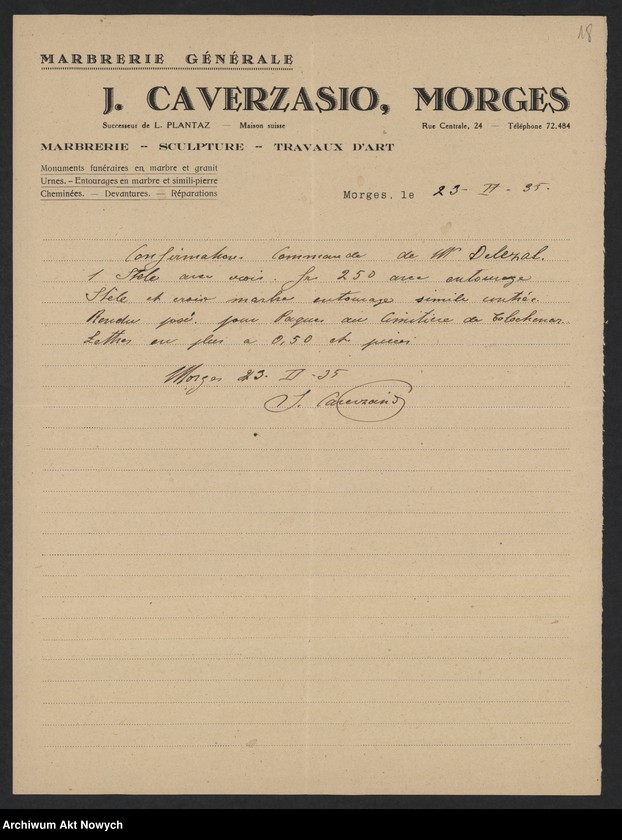 18
MARBRERIE GÉNÉRALE
J. CAVERZASIO, MORGES
Successeur de L. PLANTAZ — Maison suisse
Rue Centrale, 24 — Téléphone 72.484
MARBRERIE -- SCULPTURE -- TRAVAUX D'ART
Monuments funéraires en marbre et granit
Urnes. - Entourages en marbre et simili-pierre
Cheminées. — Devantures. — Réparations
Morges, le 23- II - 35.
Confirmation Commande de Mr
1 Stele avec croix. frs 250 avec entourage
Stele et croix marbre entourage simile
Rendu posé. pour Paques au Cimitière de Tolochenaz.
Lettres en plus a 0,50 ct
Morges 23- II - 35
J. Caverzasio
Archiwum Akt Nowych